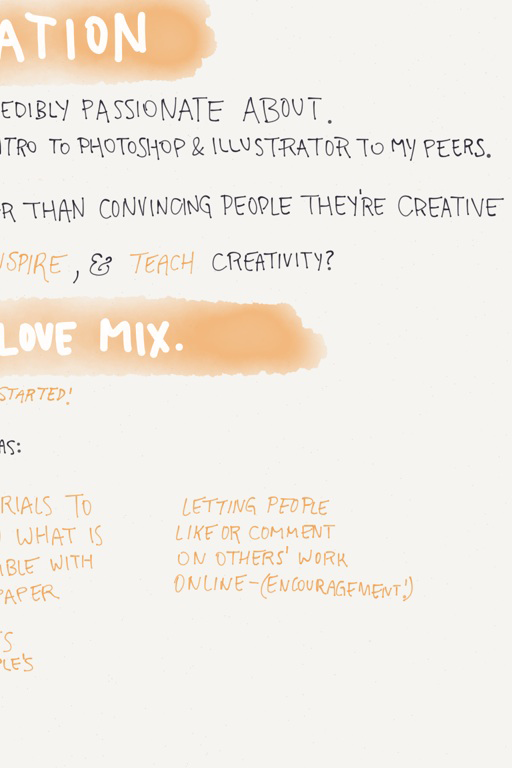 ATION
EDIBLY PASSIONATE ABOUT.
TRO TO PHOTOSHOP & ILLUSTRATOR TO MY PEERS.
R THAN CONVINCING PEOPLE THEY'RE CREATIVE
NSPIRE, & TEACH CREATIVITY?
LOVE MIX.
STARTED!
AS:
RIALS TO
WHAT IS
IBLE WITH
PAPER
TS
PLE'S
LETTING PEOPLE
LIKE OR COMMENT
ON OTHERS' WORK
ONLINE-(ENCOURAGEMENT!)